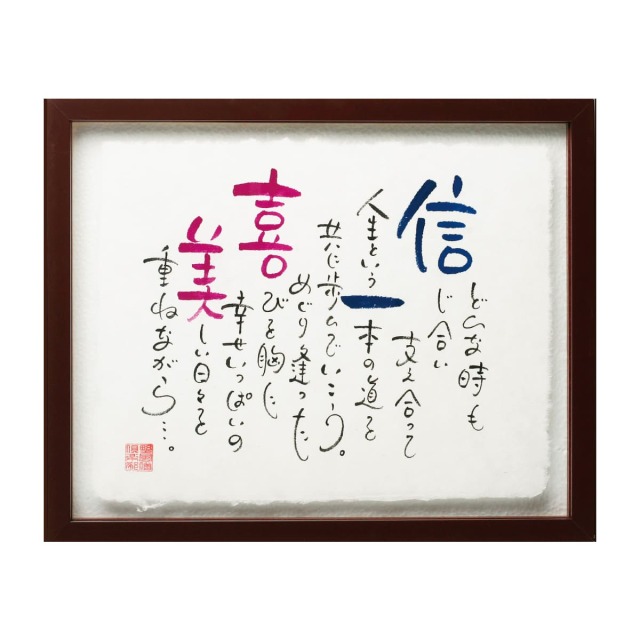 どんな時も
信じ合い
支え合って
一本の道を
人生という
共に歩んでいこう。
めぐり逢った
喜びを胸に
幸せいっぱいの
美しい日々を
重ねながら…。